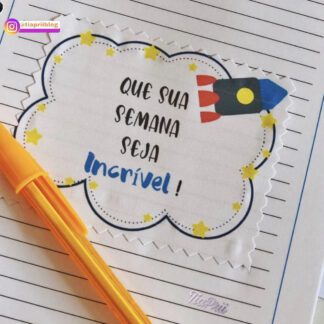 @tiapriiblog
QUE SUA
SEMANA
SEJA
Incrível!
TiaPrii